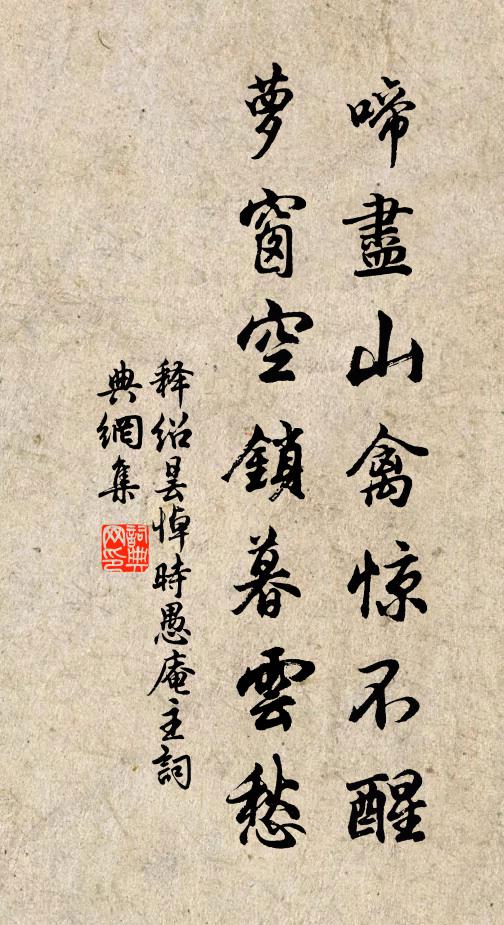 啼盡山禽惊不醒
萝窗空鎖暮雲愁
释紹曇悼時愚庵主詞
典網集
詞典网印